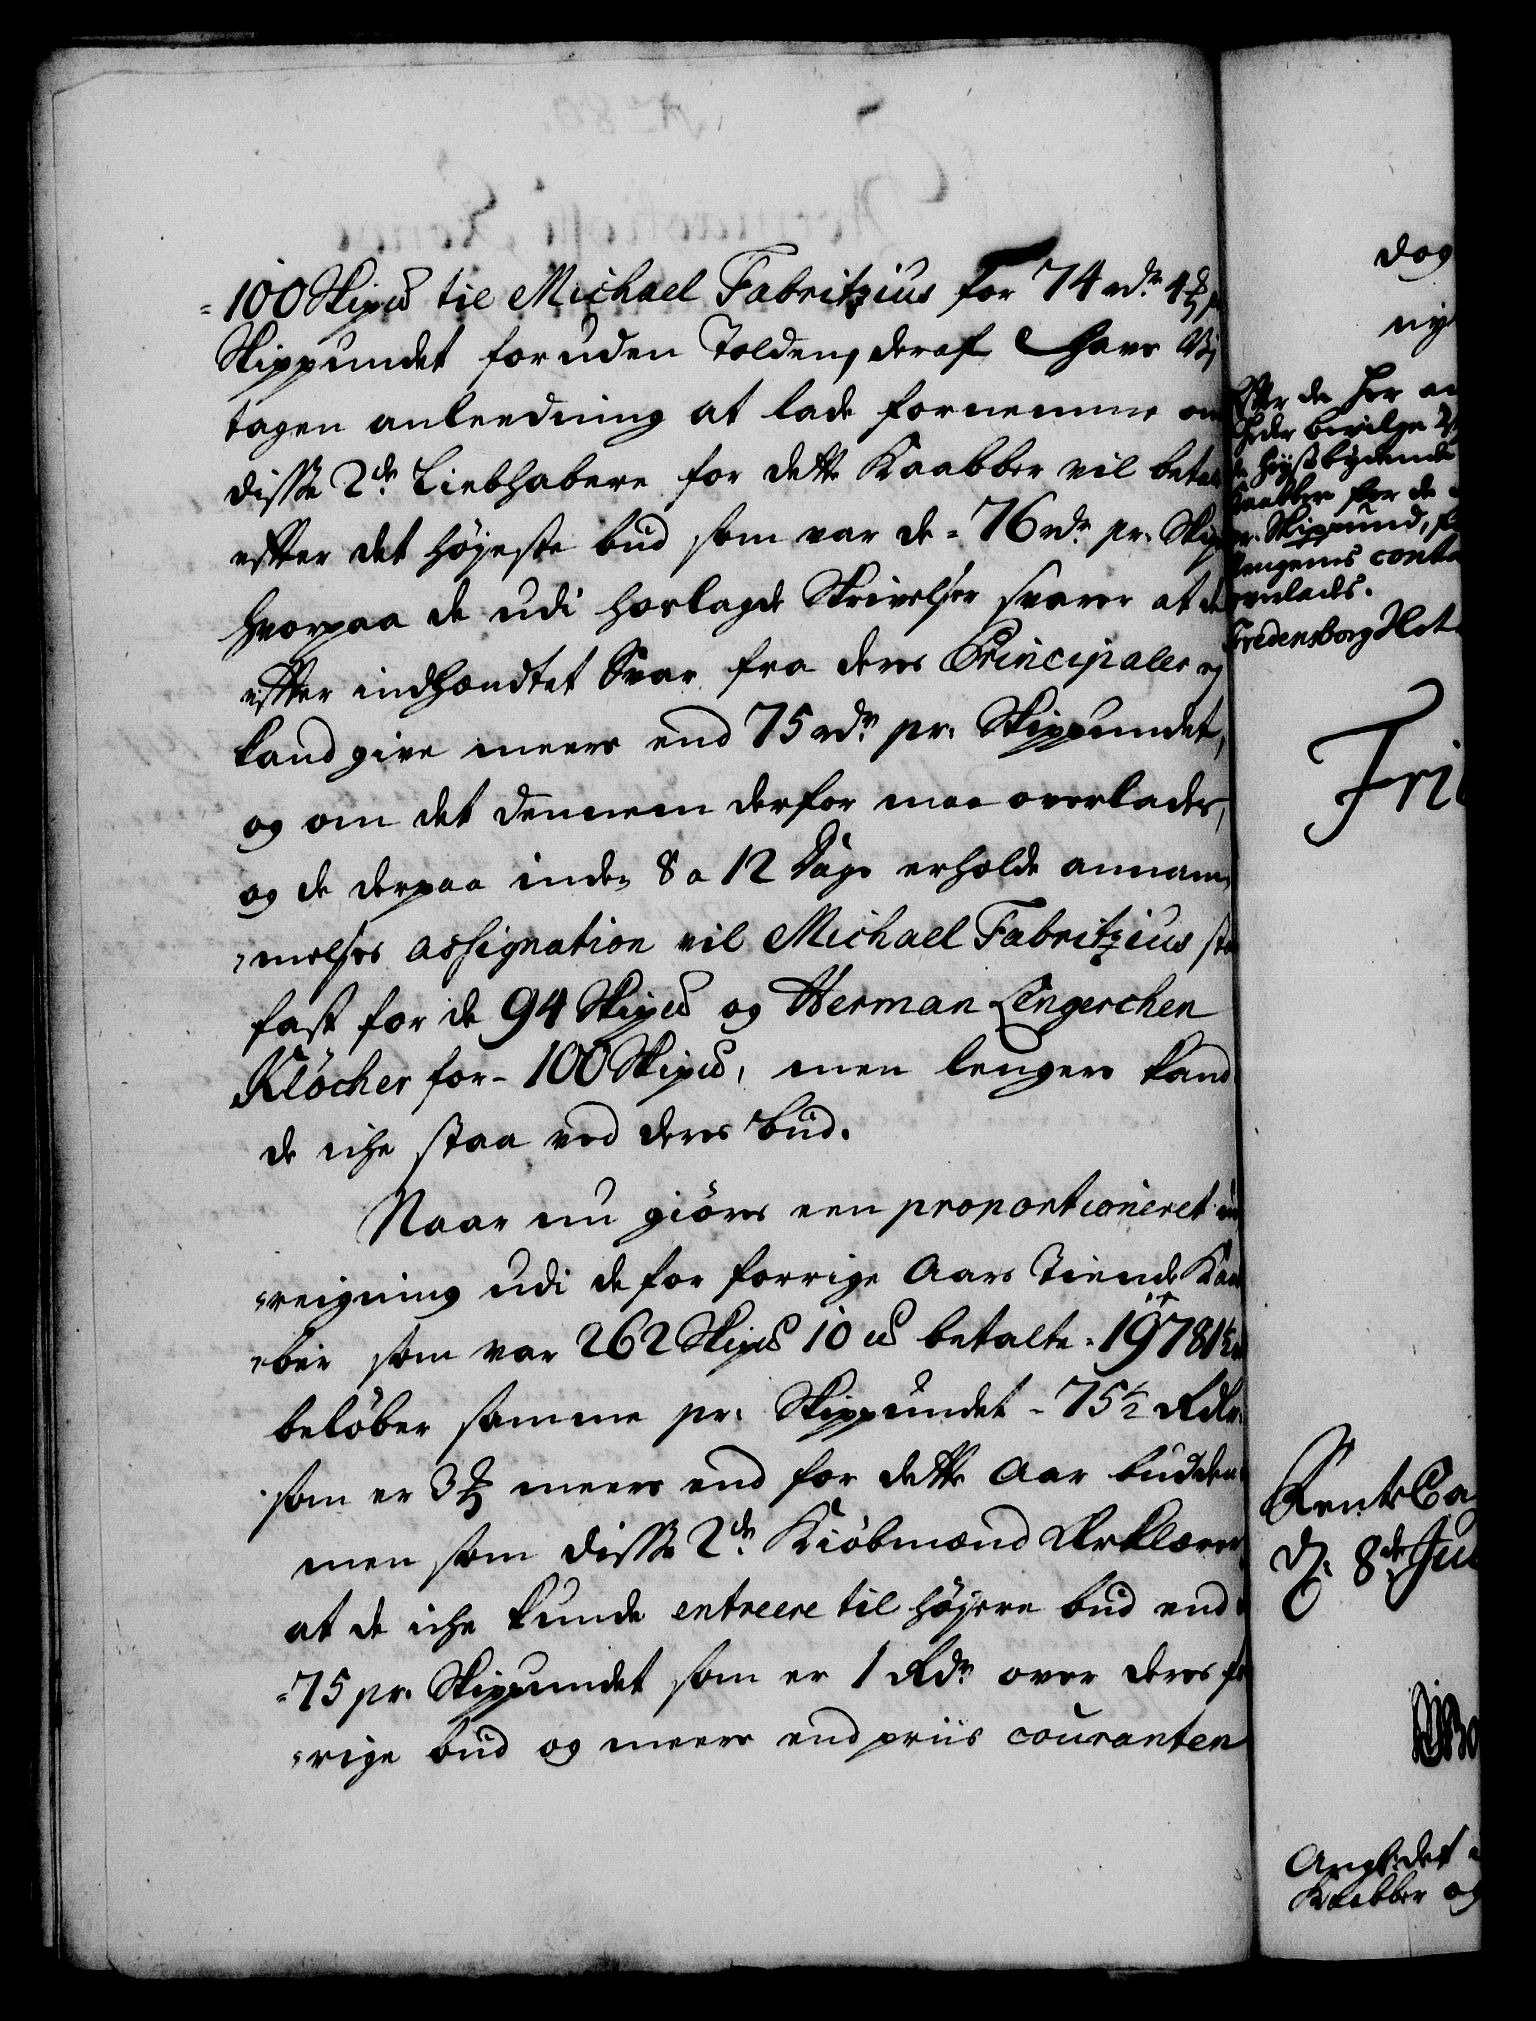 =100 Skip℔ til Michael Fabritzius for 74 rdr 4 ß
Skippundet foruden Tolden, deraf Have Vi
tagen anleedning at lade fornemme om
disse 2de Liebhabere for dette Kaabber vil betale
efter det höyeste bud som var de = 76 rdr pr: Skip
hvorpaa de udi hoslagde Skrivelser svarer at de
efter indhændtet Svar fra deres Principaler ej
kand give meere end 75 rdr pr: Skippundet,
og om det dennem derfor maa overlades,
og de derpaa inden 8 a 12 Dage erholde annam,
,melses assignation vil Michael Fabritzius staa
fast for de 94 Skip℔ og Herman Lengerchen
Klöcher for - 100 Skip℔, men lengere kand
de iche staa ved deres bud.
Naar nu giöres een proportioneret
,reigning udi de for forrige Aars Tiende Kaa
,ber som var 262 Skip℔ 10 ℔ betalte = 19781½
belöber samme pr: Skippundet - 75½ Rdlr.
som er 3 ß meere end for dette Aar budden
men som disse 2de Kiöbmænd Erklærer
at de iche kunde entreere til höyere bud end
=75 pr. Skippundet som er 1 Rdr over deres
,rige bud og meere end priis couranten
dog
ny
Efter de her
bevilge
höystbydende
Kaabber for de
pr. Skippund,
contr
overlades.
Fredensborg Slot
Fri
RenteCa
D. 8de Jul
Angl: det
Kaabber og